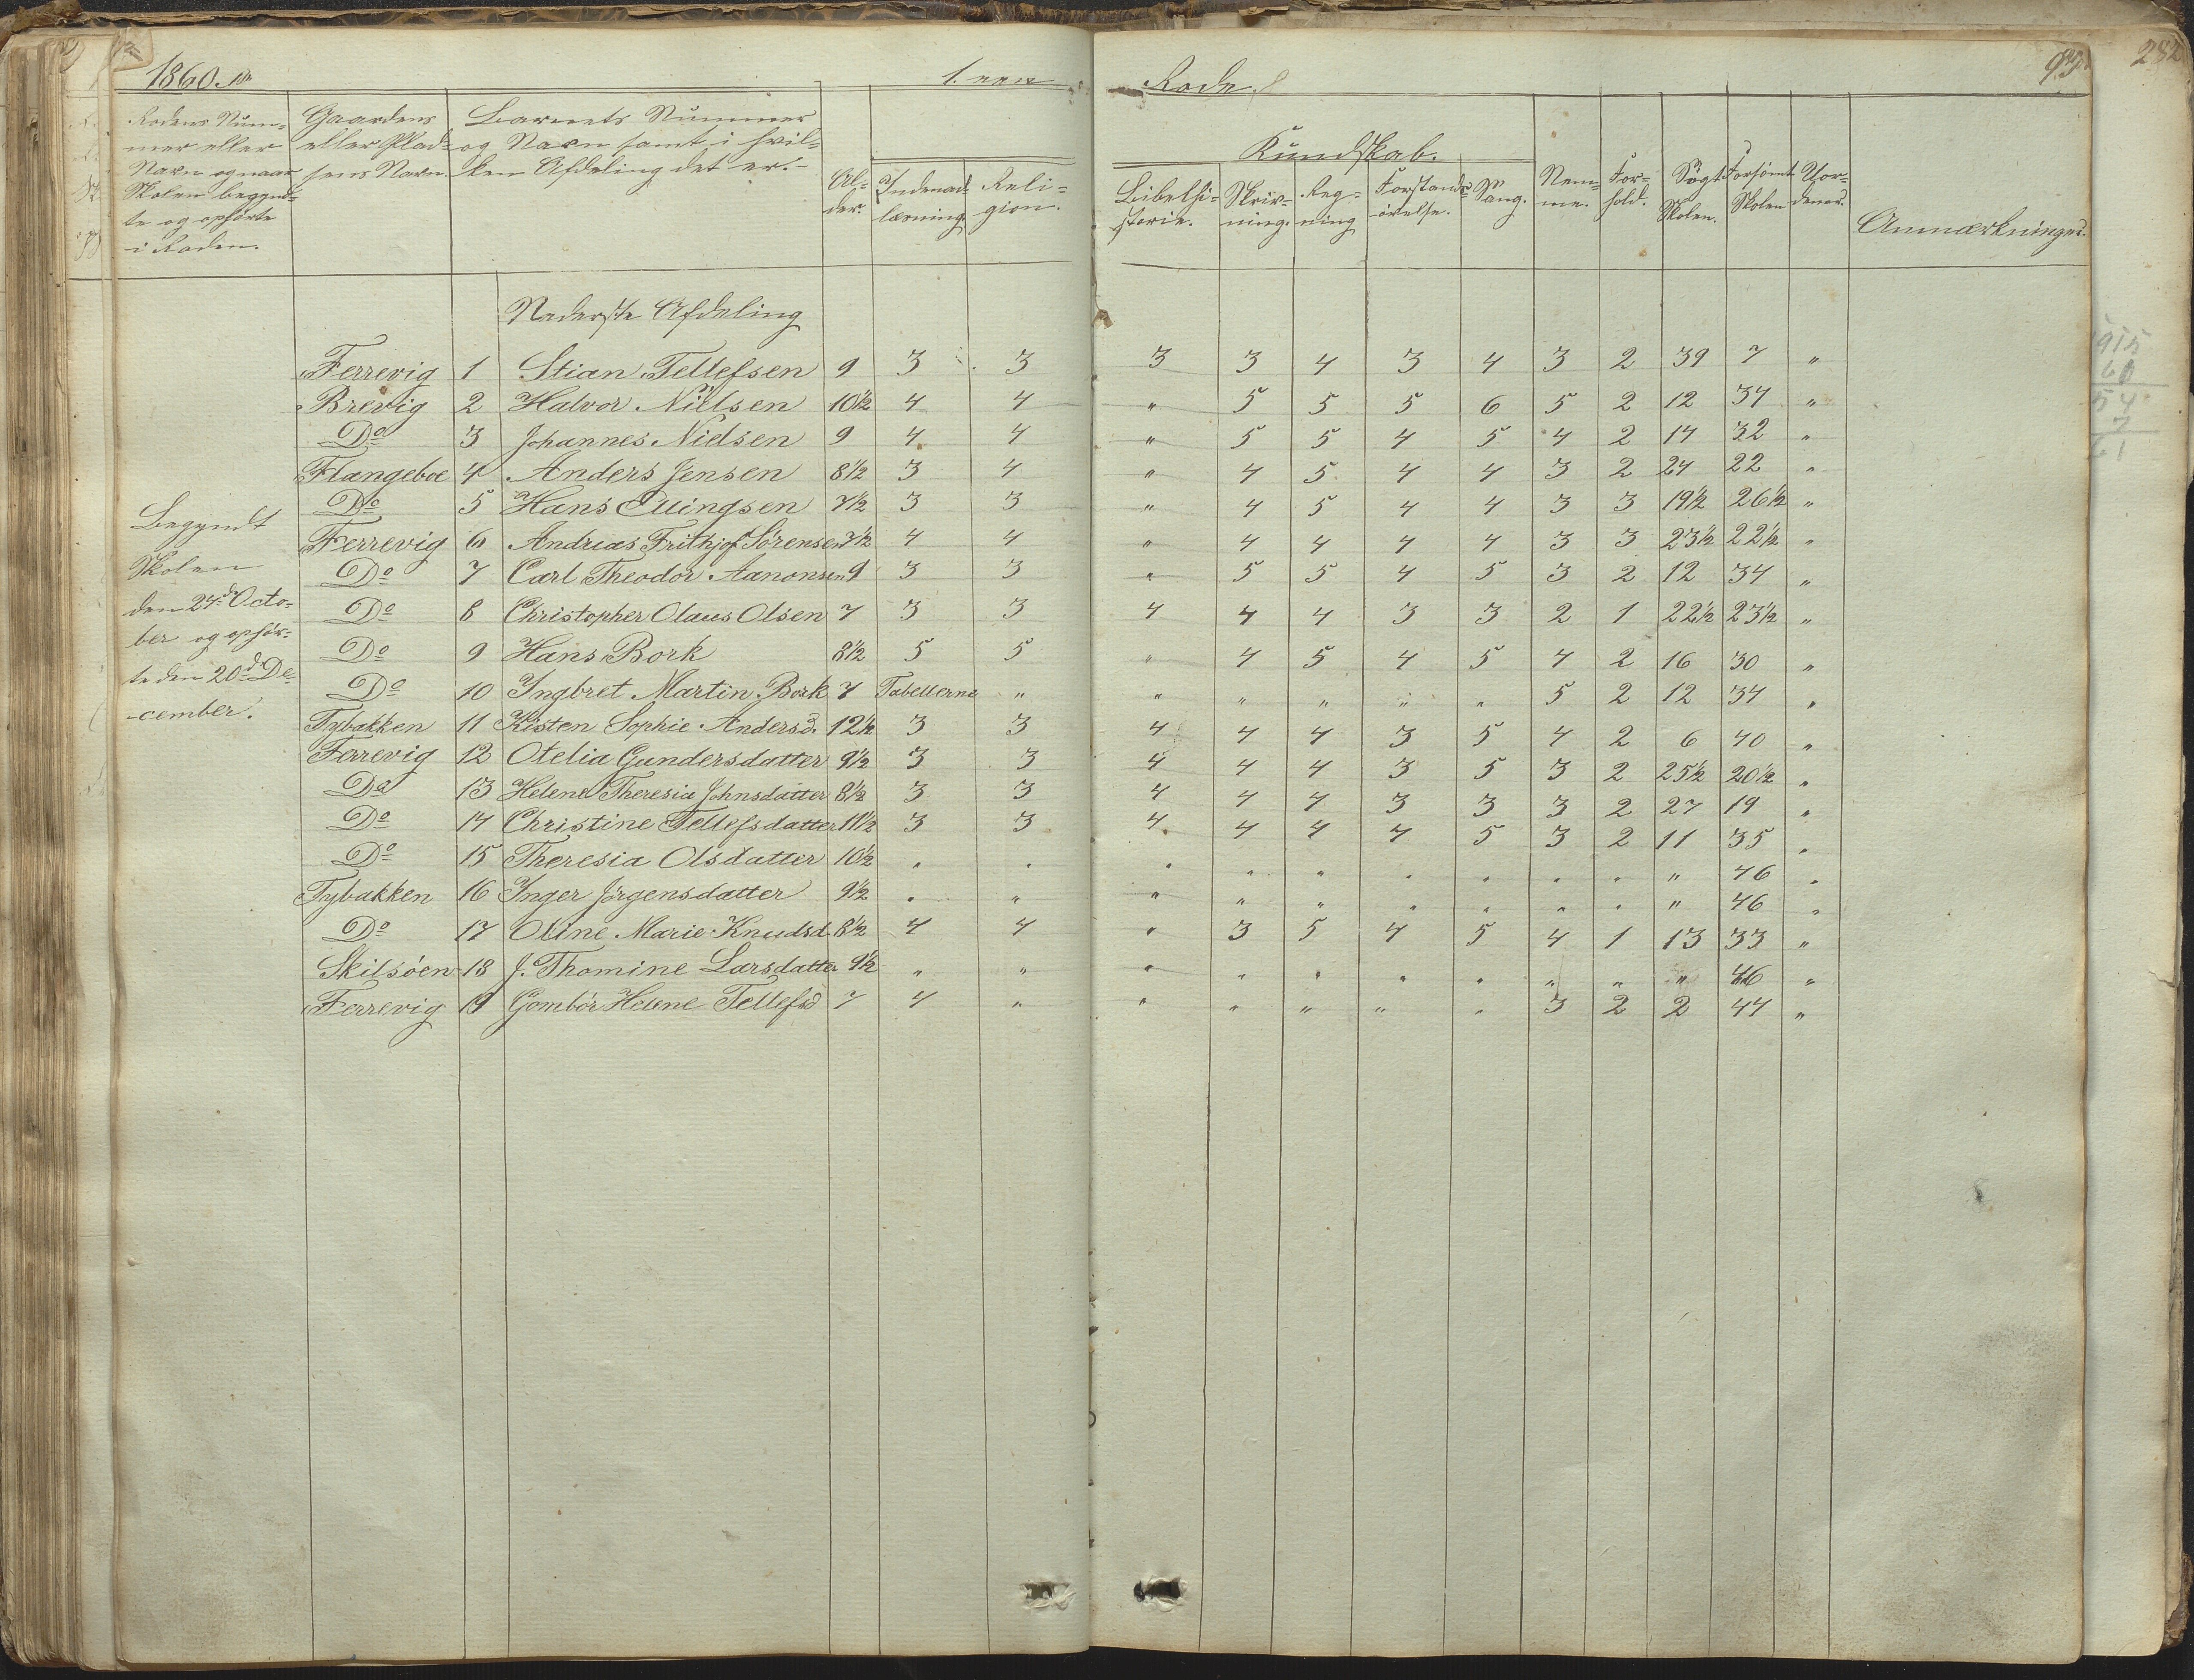 1860 1. Rode. 93 282
Rodens Num-
mer eller
Navn og naar
Skolen begynd-
te og ophørte
i Roden.
Gaardens
eller Plad-
sens Navn.
Barnets Nummer
og Navn samt i hvil-
ken Afdeling det er.
Al-
der.
Kundskab.
Indenad-
læsning
Reli-
gion.
Bibelhi-
storie.
Skriv-
ning.
Reg-
ning
Forstands-
øvelse.
Sang.
Nem-
me.
For-
hold.
Søgt
Skolen.
Forsømt
Skolen
Uor-
dener.
Anmærkninger.
Nederste Afdeling
Begyndt
Skolen
den 24de Octo-
ber og ophør-
te den 20de De-
cember.
Ferrevig 1 Stian Tellefsen 9 3 3 3 3 4 3 4 3 2 39 7 "
Brevig 2 Halvor Nielsen 10½ 4 4 " 5 5 5 6 5 2 12 34 "
Do 3 Johannes Nielsen 9 4 4 " 5 5 4 5 4 2 14 32 "
Flangeboe 4 Anders Jensen 8½ 3 4 " 4 5 4 4 3 2 24 22 "
Do 5 Hans Ellingsen 7½ 3 3 " 4 5 4 4 3 3 19½ 26½ "
Ferrevig 6 Andreas Frithjof Sörensen 7½ 4 4 " 4 4 4 4 3 3 23½ 22½ "
Do 7 Carl Theodor Aanonsen 9 3 3 " 5 5 4 5 3 2 12 34 "
Do 8 Christopher Olaus Olsen 7 3 3 4 4 4 3 3 2 1 22½ 23½ "
Do 9 Hans Bork 8½ 5 5 " 4 5 4 5 4 2 16 30 "
Do 10 Ingbret Martin Bork 7 Tabellerne " " " " " " 5 2 12 34 "
Tybakken 11 Kisten Sophie Andersd. 12½ 3 3 4 4 4 3 5 4 2 6 40 "
Ferrevig 12 Otelia Gundersdatter 9½ 3 3 4 4 4 3 5 3 2 25½ 20½ "
Do 13 Helene Theresia Johnsdatter 8½ 3 3 4 4 4 3 3 3 2 27 19 "
Do 14 Christine Tellefsdatter 11½ 3 3 4 4 4 4 5 3 2 11 35 "
Do 15 Theresia Olsdatter 10½ " " " " " " " " " " 46 "
Tybakken 16 Inger Jörgensdatter 9½ " " " " " " " " " " 46 "
Do 17 Oline Marie Knudsd. 8½ 4 4 " 3 5 4 5 4 1 13 33 "
Skilsöen 18 J. Thomine Larsdatter 9½ " " " " " " " " " " 46 "
Ferrevig 19 Gombör Helene Tellefsd 7 4 " " " " " " 3 2 2 44 "